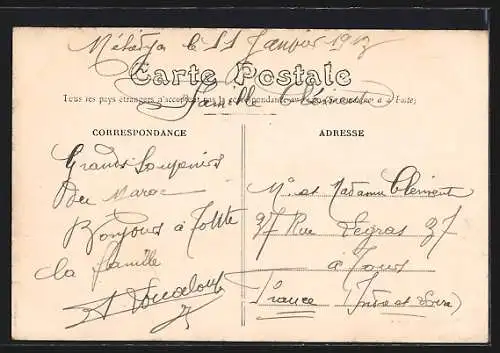 Méhedya le 11 Janvier 191
Carte Postale
Tous les pays étrangers n'acceptent pas la correspondance au
Famille Clément
CORRESPONDANCE
Grands Souvenirs
du Maroc
Bonjours à Toute
la famille
ADRESSE
Mr et Madame Clément
37 Rue Legras 37
à Tours
France (Indre et Loire)